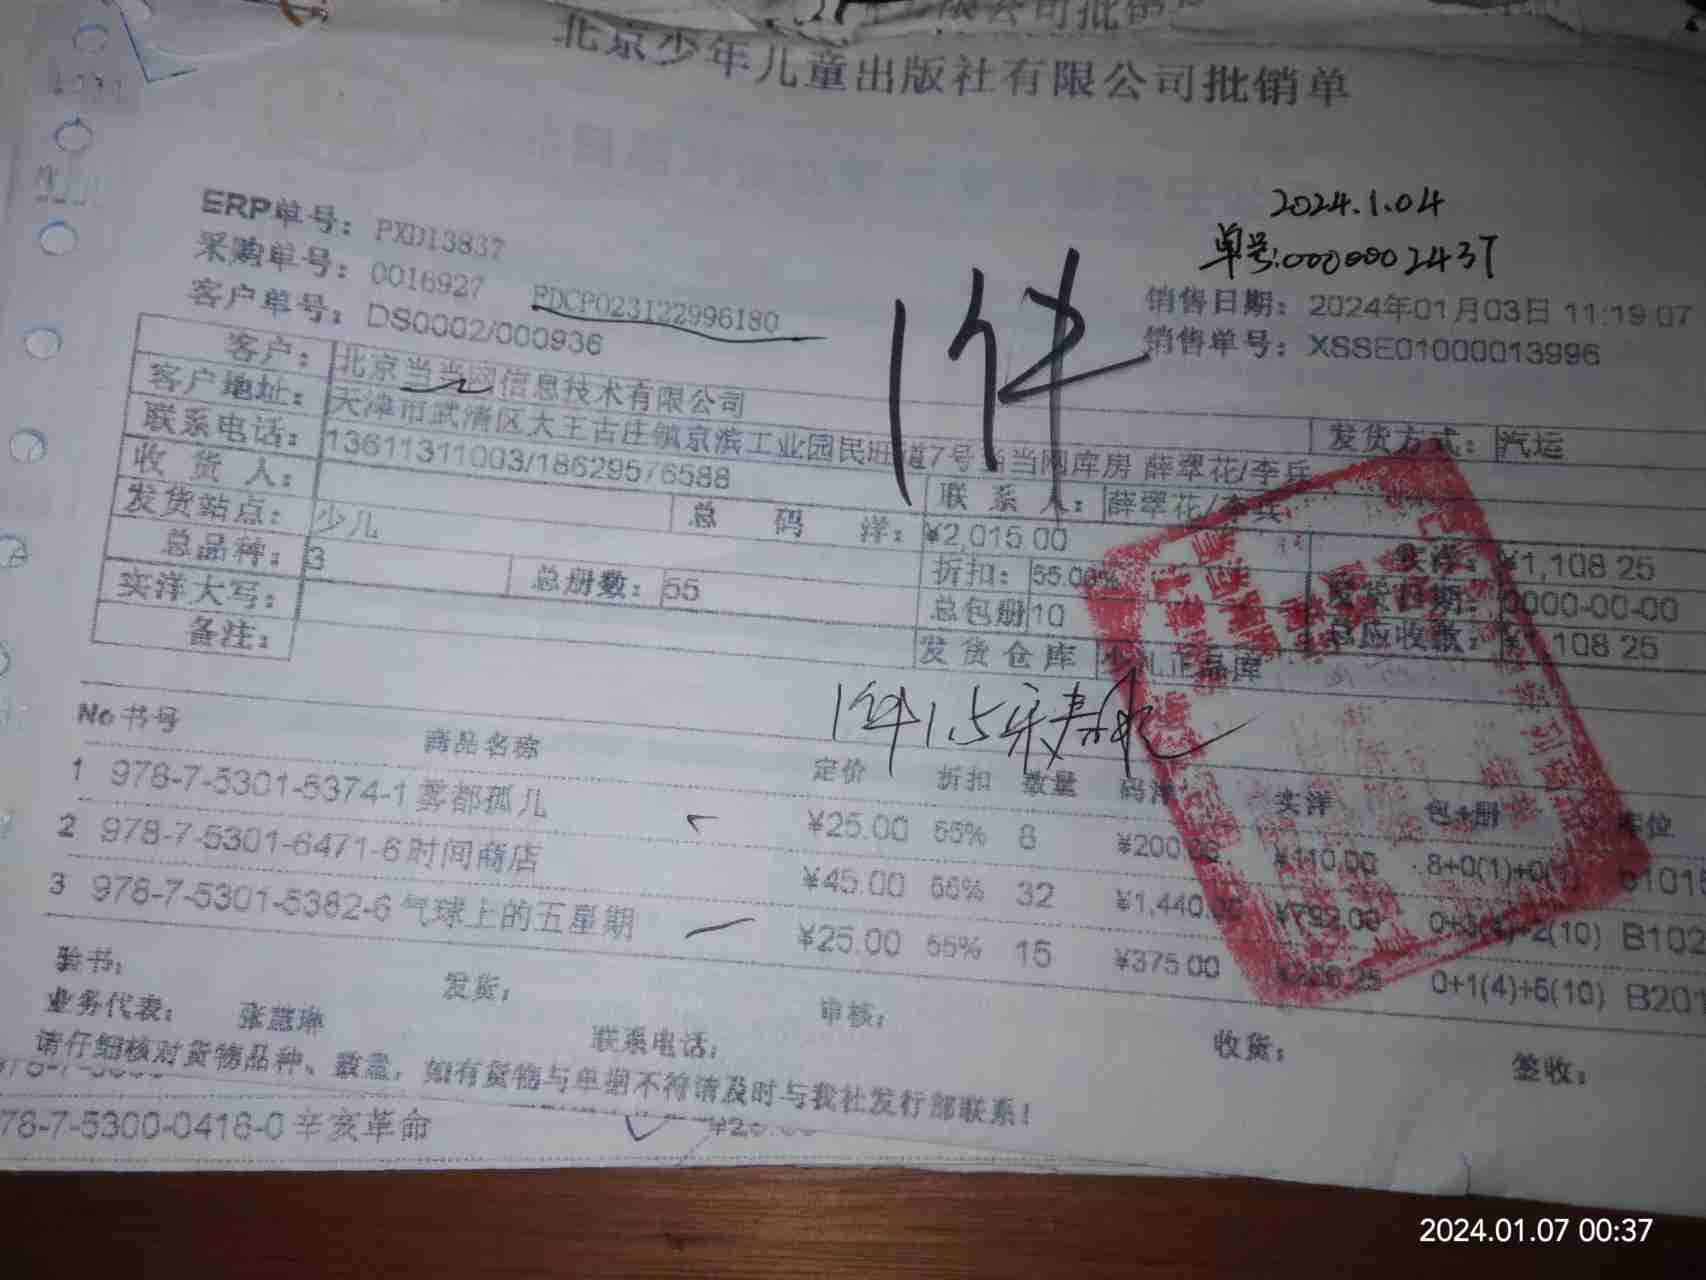 北京少年儿童出版社有限公司批销单
2024.1.04
单号:0000002437
ERP单号： PXD13837
采购单号： 0016927 PDCP023122996180
客户单号： DS0002/000936
销售日期： 2024年01月03日 11:19:07
销售单号： XSSE01000013996
1件
客户： 北京当当网信息技术有限公司 发货方式： 汽运
客户地址： 天津市武清区大王古庄镇京滨工业园民旺道7号当当网库房 薛翠花/李兵
联系电话： 13611311003/18629576588 联系人： 薛翠花/李兵
收货人： 总码洋： ¥2,015.00 实洋： ¥1,108.25
发货站点： 少儿 折扣： 55.00% 发货日期： 0000-00-00
总品种： 3 总册数： 55 总包册 10 总应收款： ¥1,108.25
实洋大写： 发货仓库
备注：
1件1.5
No 书号 商品名称 定价 折扣 数量 码洋 实洋 包+册
1 978-7-5301-5374-1 雾都孤儿 ¥25.00 55% 8 ¥200 ¥110.00 8+0(1)+0
2 978-7-5301-6471-6 时间商店 ¥45.00 55% 32 ¥1,440. ¥792.00 2(10) B102
3 978-7-5301-5382-6 气球上的五星期 ¥25.00 55% 15 ¥375.00 0+1(4)+5(10) B201
验书： 发货： 审核： 收货： 签收：
业务代表： 张慧琳 联系电话：
请仔细核对货物品种、数量，如有货物与单据不符请及时与我社发行部联系！
78-7-5300-0418-0 辛亥革命
2024.01.07 00:37